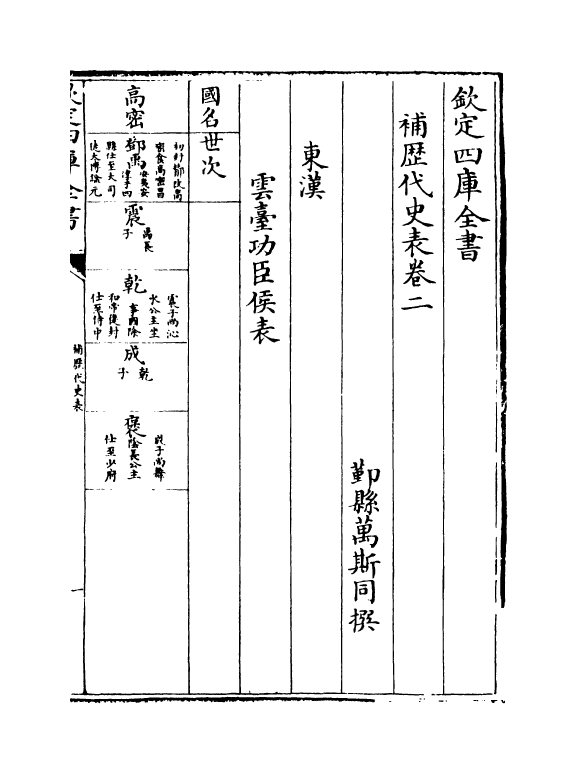 欽定四庫全書
補歴代史表卷二
鄞縣萬斯同撰
東漢
雲臺功臣侯表
國名世次
高密
初封酇改高
密食高密昌
鄧禹
安夷安
淳于四
縣仕至大司
徒太傅諡元
震
禹長
子
乾
震子尚沁
水公主坐
事國除
和帝復封
仕至侍中
成
乾
子
褒
成子尚舞
陰長公主
仕至少府
欽定四庫全書
補歴代史表
一